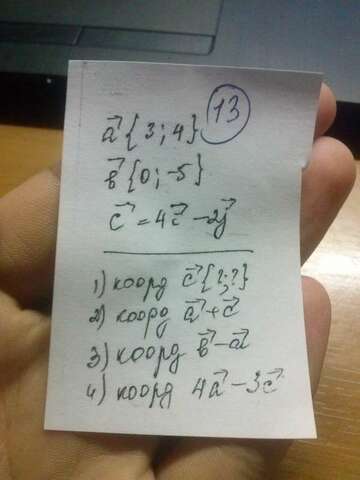 13
a⃗ {3; 4}
b⃗ {0; -5}
c⃗ = 4c⃗ - 2j⃗
1) коорд c⃗ {?;?}
2) коорд a⃗ + c⃗
3) коорд b⃗ - a⃗
4) коорд 4a⃗ - 3c⃗